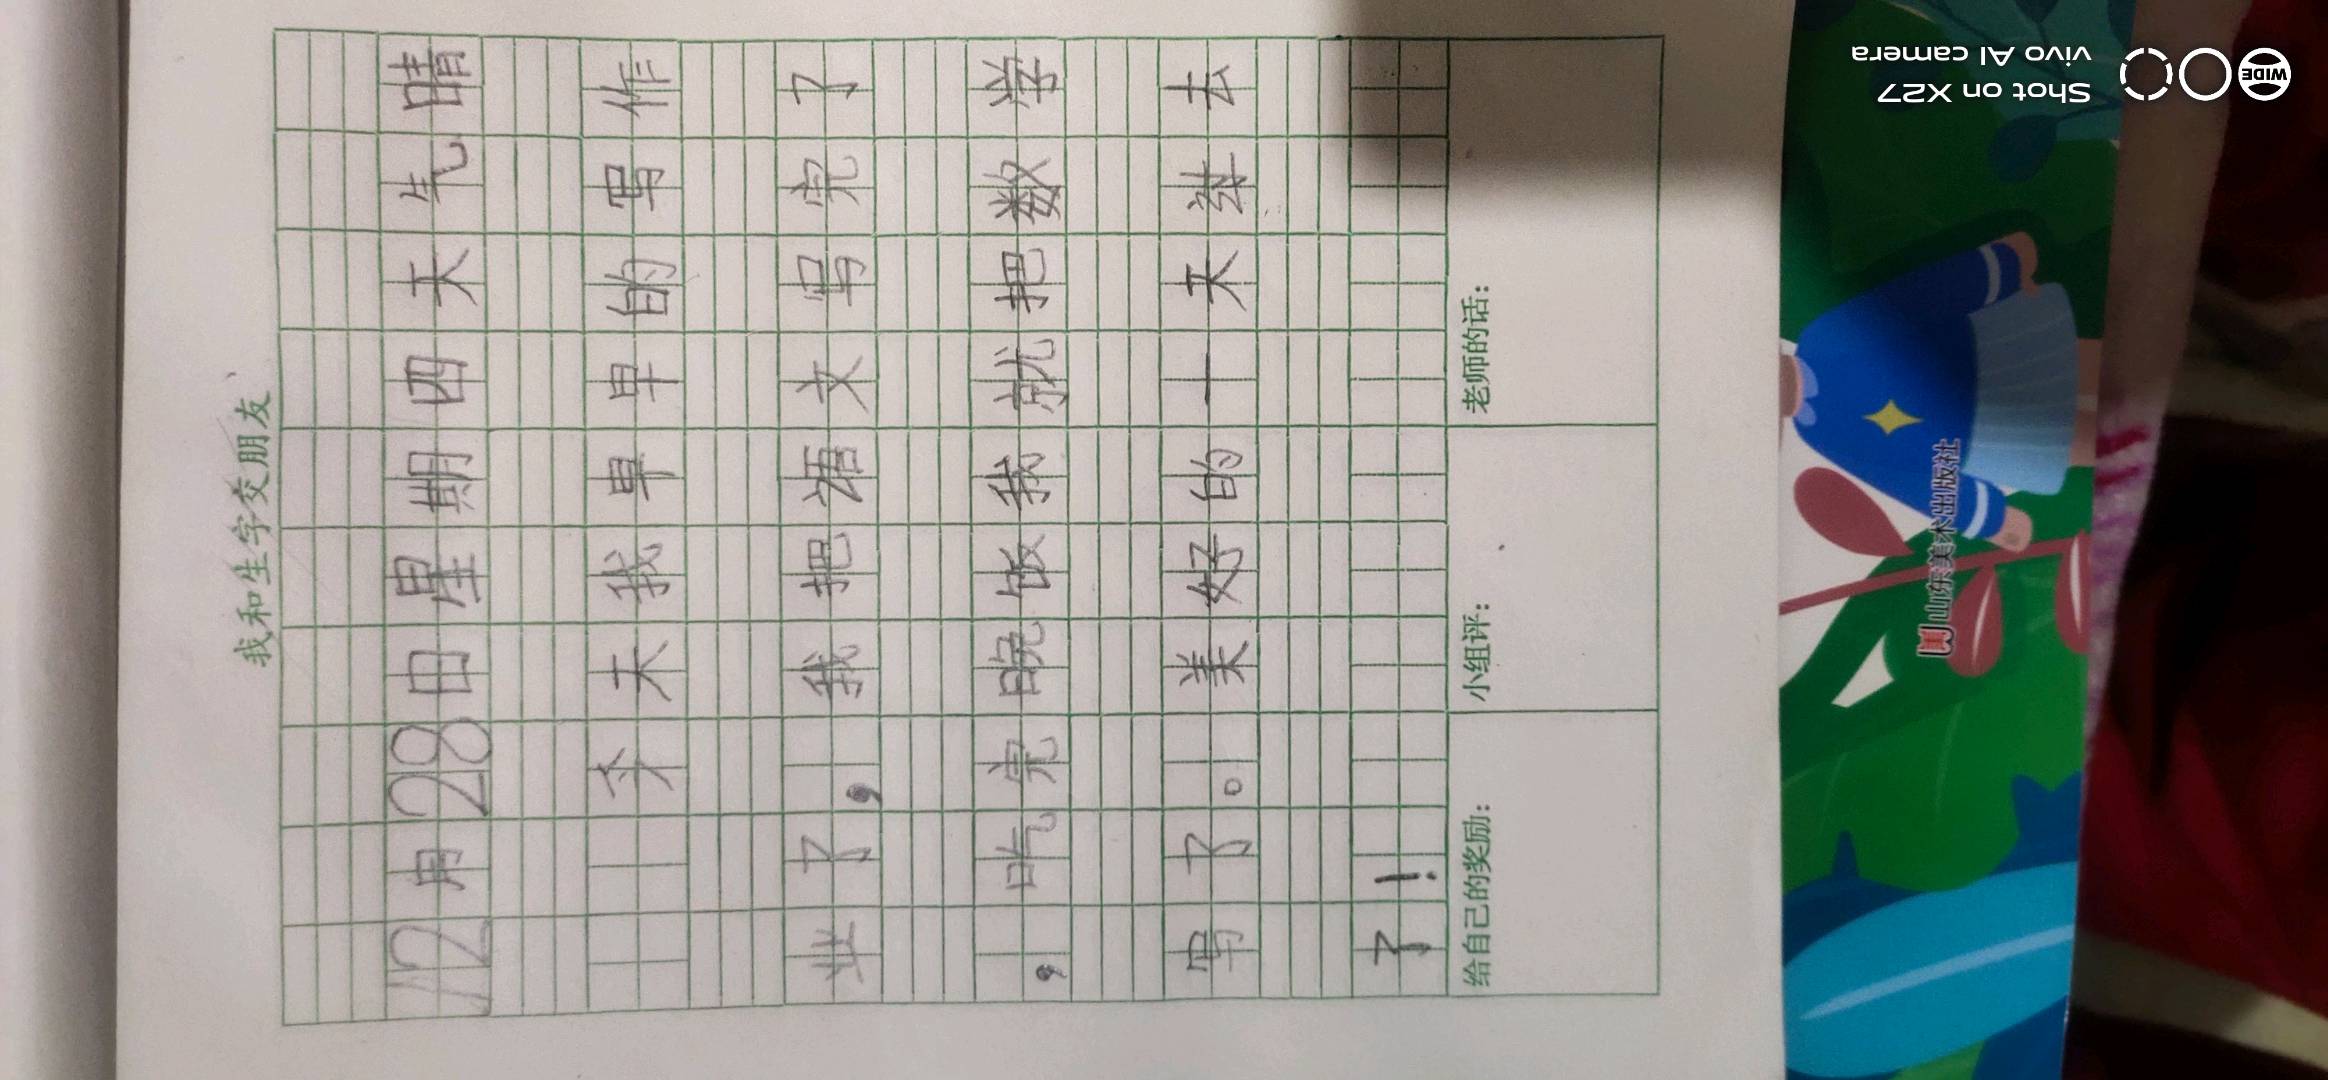 我和生字交朋友
12月28日星期四天气晴
今天我早早的写作
业了，我把语文写完了
，吃完晚饭我就把数学
写了。美好的一天过去
了！
给自己的奖励：
小组评：
老师的话：
山东美术出版社
Shot on X27
vivo AI camera
WIDE